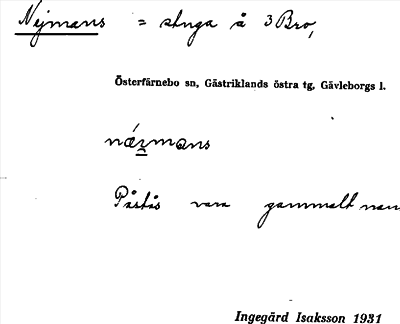 Nejmans = stuga å 3 Bro,
Österfärnebo sn, Gästriklands östra tg, Gävleborgs l.
Påstås vara gammalt namn
Ingegärd Isaksson 1931